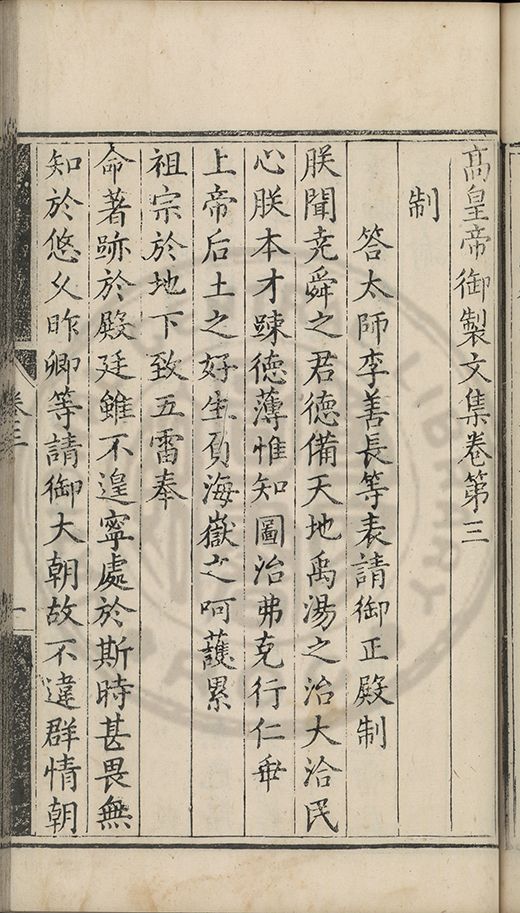 高皇帝御製文集卷第三
制
答太師李善長等表請御正殿制
朕聞堯舜之君德備天地禹湯之治大洽民
心朕本才踈德薄惟知圖治弗克行仁乖
上帝后土之好生負海嶽之呵護累
祖宗於地下致五雷奉
命著跡於殿廷雖不遑寧處於斯時甚畏無
知於悠久昨卿等請御大朝故不違群情朝
卷三
一